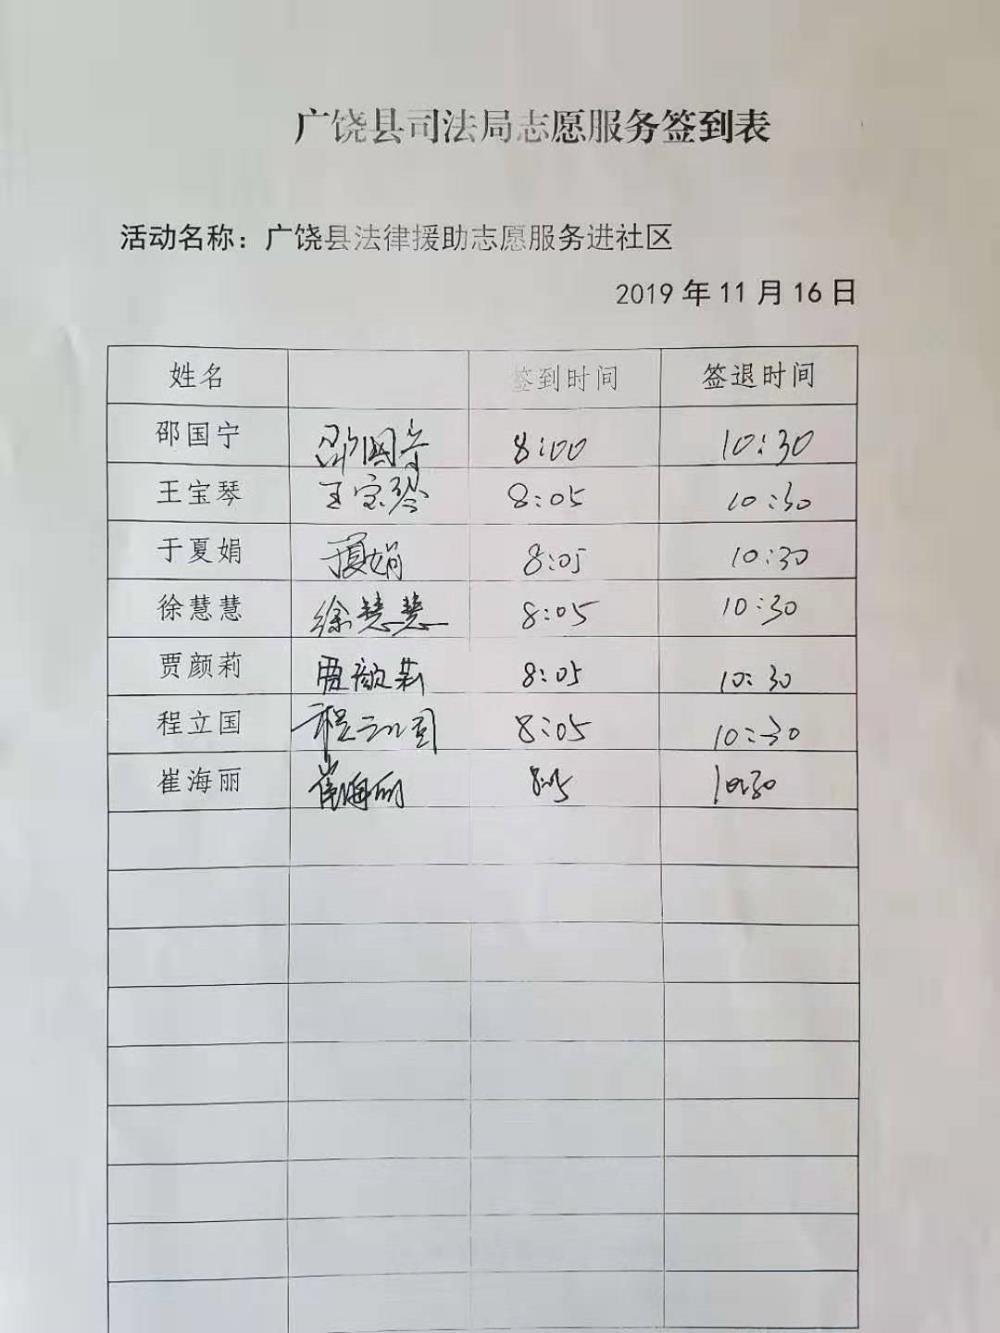 广饶县司法局志愿服务签到表
活动名称：广饶县法律援助志愿服务进社区
2019 年 11 月 16 日
姓名 签到时间 签退时间
邵国宁 邵国宁 8:00 10:30
王宝琴 王宝琴 8:05 10:30
于夏娟 于夏娟 8:05 10:30
徐慧慧 徐慧慧 8:05 10:30
贾颜莉 贾颜莉 8:05 10:30
程立国 程立国 8:05 10:30
崔海丽 崔海丽 8:05 10:30